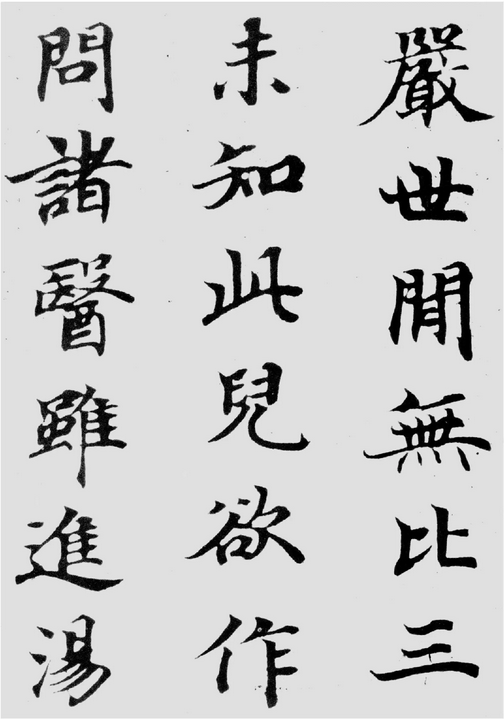 嚴世閒無比三
未知此兒欲作
問諸醫雖進湯